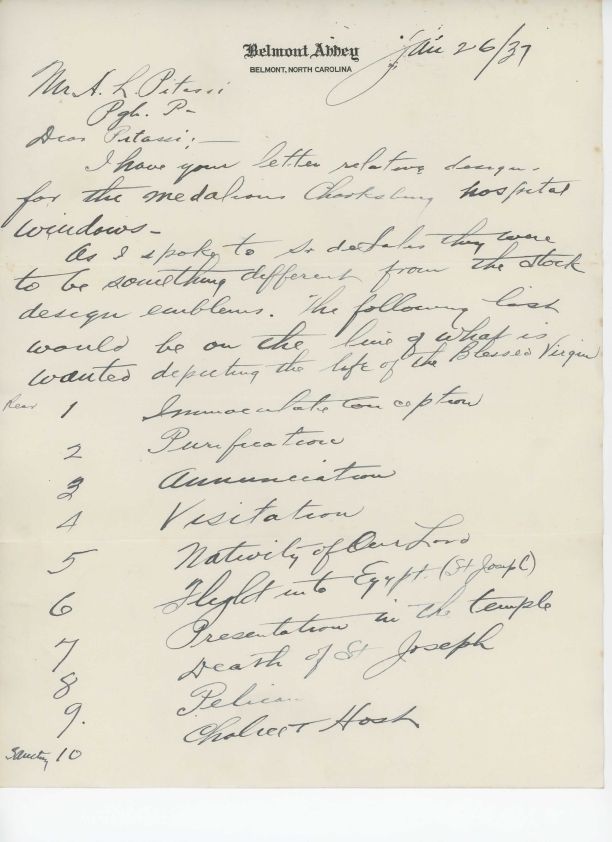 Belmont Abbey
BELMONT, NORTH CAROLINA
Jan 26/37
Mr. A. L. Pitassi
Pgh. Pa
Dear Pitassi;—
I have your letter relative designs
for the medalions Clarksburg hospital
windows—
As I spoke to Sr deSales they were
to be something different from the stock
design emblems. The following list
would be on the line of what is
wanted depicting the life of the Blessed Virgin
Rear 1 Immaculate Conception
2 Purification
3 Annunciation
4 Visitation
5 Nativity of Our Lord
6 Flight into Egypt (St Joseph)
7 Presentation in the temple
8 Death of St Joseph
9. Pelican
Sanctuary 10 Chalice & Host